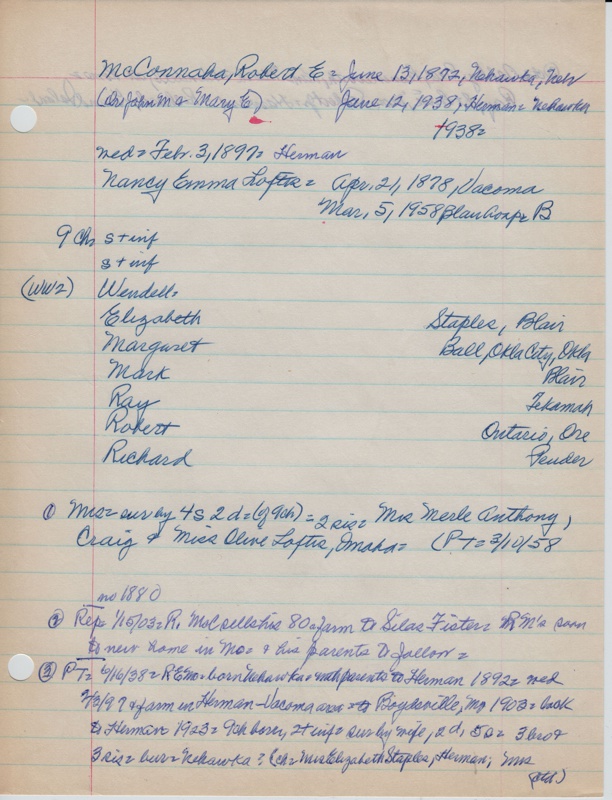 McConnaha, Robert E = June 13, 1872, Nehawka, Neb
(s/John M & Mary E) June 12, 1938, Herman = Nehawka
1938 =
wed = Febr. 3, 1897 = Herman
Nancy Emma Loftis = Apr. 21, 1878, Vacoma
Mar, 5, 1958 Blair B
9 ch s + inf
s + inf
(WW2) Wendell =
Elizabeth Staples, Blair
Margaret Ball, Okla City, Okla
Mark Blair
Ray Tekamah
Robert Ontario, Ore
Richard Pender
① Mrs = sur by 4 s 2 d = (of 9 ch) = 2 sis = Mrs Merle Anthony,
Craig & Miss Olive Loftis, Omaha = (PT = 3/10/58
no 1880
② Rep 1/15/03 = R. McC sells his 80 a farm to Silas Fister = R M's soon
to new home in Mo = & his parents to follow =
③ PT = 6/16/38 = R E Mc = born Nehawka = with parents to Herman 1892 = wed
2/3/97 & farm in Herman - Vacoma area = to Mo 1903 = back
to Herman 1923 = 9 ch born, 2 + inf = sur by wife, 2 d, 5 s = 3 bro &
3 sis = bur = Nehawka? (ch = Mrs Elizabeth Staples, Herman; Mrs
(ctd.)